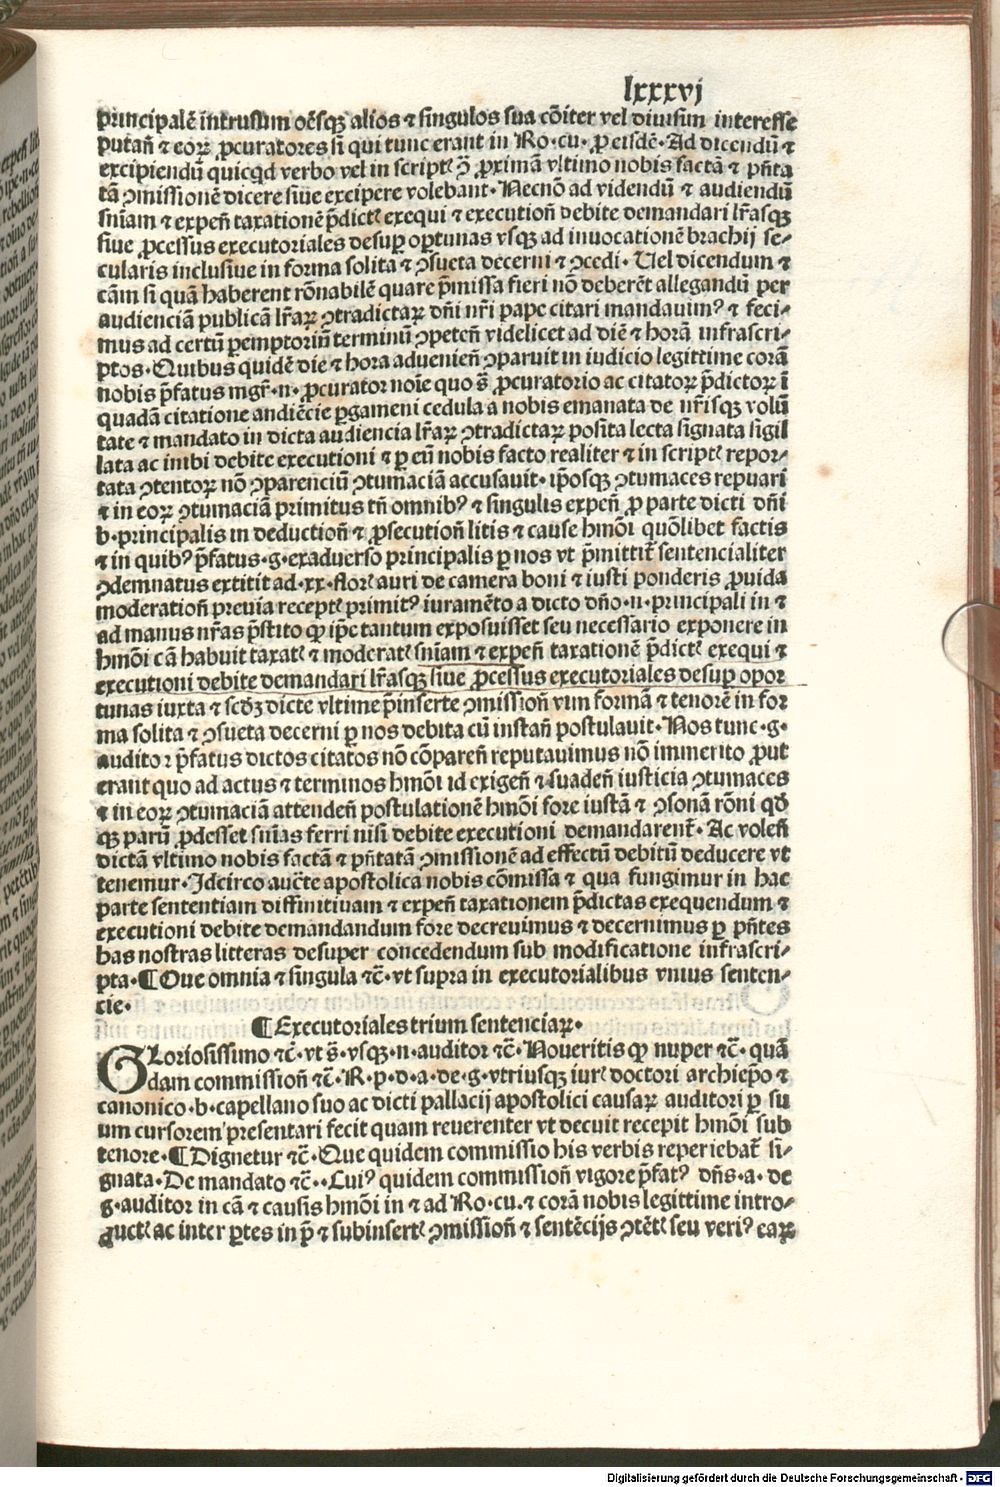 lxxxvj
principalē intrusum oēsqꝫ alios ⁊ singulos sua cōiter vel diuisim interesse
putañ ⁊ eoꝝ ꝓcuratores si qui tunc erant in Ro·cu· ꝓ eisdē· Ad dicendū ⁊
excipiendū quicqd verbo vel in scriptꝭ ꝯͣ ꝓximā vltimo nobis factā ⁊ pn̄ta
tā ꝯmissionē dicere siue excipere volebant· Necnō ad videndū ⁊ audiendū
sniam ⁊ expeñ taxationē p̄dictꝭ exequi ⁊ executioñ debite demandari lr̄asqꝫ
siue ꝓcessus executoriales desuꝑ oꝑtunas vsqꝫ ad inuocationē brachij se⸗
cularis inclusiue in forma solita ⁊ ꝯsueta decerni ⁊ ꝯcedi· Uel dicendum ⁊
cām si quā haberent rōnabilē quare p̄missa fieri nō deberēt allegandū per
audienciā publicā lr̄aꝝ ꝯtradictaꝝ dn̄i nr̄i pape citari mandauimꝰ ⁊ feci⸗
mus ad certū ꝑemptoriū terminū ꝯpeteñ videlicet ad diē ⁊ horā infrascri⸗
ptos· Quibus quidē die ⁊ hora adueñieñ ꝯparuit in iudicio legittime corā
nobis p̄fatus mgr̄·n· ꝓcurator noīe quo s̄ ꝓcuratorio ac citatoꝝ p̄dictoꝝ ī
quadā citatione audiēcie ꝑgameni cedula a nobis emanata de nr̄isqꝫ volū
tate ⁊ mandato in dicta audiencia lr̄aꝝ ꝯtradictaꝝ posita lecta signata sigil
lata ac inibi debite executioni ⁊ ꝑ eū nobis facto realiter ⁊ in scriptꝭ repor⸗
tata ꝯtentoꝝ nō ꝯparenciū ꝯtumaciā accusauit· ip̄osqꝫ ꝯtumaces reputari
⁊ in eoꝝ ꝯtumaciā primitus tn̄ omnibꝰ ⁊ singulis expeñ ꝓ parte dicti dn̄i
b·principalis in deductioñ ⁊ ꝓsecutioñ litis ⁊ cause hmōi quōlibet factis
⁊ in quibꝰ p̄fatus·g·exaduerso principalis ꝑ nos vt p̄mittit̄ sentencialiter
ꝯdemnatus extitit ad·xx·florꝭ auri de camera boni ⁊ iusti ponderis ꝓuida
moderatioñ preuia receptꝭ primitꝰ iuramēto a dicto dn̄o·n·principali in ⁊
ad manus nr̄as p̄stito ꝙ ip̄e tantum exposuisset seu necessario exponere in
hmōi cā habuit taxatꝭ ⁊ moderatꝭ sniam ⁊ expeñ taxationē p̄dictꝭ exequi ⁊
executioni debite demandari lr̄asqꝫ siue ꝓcessus executoriales desuꝑ opor
tunas iuxta ⁊ scd̄ꝫ dicte vltime p̄inserte ꝯmissioñ vim formā ⁊ tenorē in for
ma solita ⁊ ꝯsueta decerni ꝑ nos debita cū instañ postulauit· Nos tunc·g·
auditor p̄fatus dictos citatos nō cōpareñ reputauimus nō immerito ꝓut
erant quo ad actus ⁊ terminos hmōi id exigeñ ⁊ suadeñ iusticia ꝯtumaces
⁊ in eoꝝ ꝯtumaciā attendeñ postulationē hmōi fore iustā ⁊ ꝯsonā rōni qd̄
qꝫ parū ꝓdesset snias ferri nisi debite executioni demandarent̄· Ac voleñ
dictā vltimo nobis factā ⁊ pn̄tatā ꝯmissionē ad effectū debitū deducere vt
tenemur· Idcirco auctē apostolica nobis cōmissa ⁊ qua fungimur in hac
parte sententiam diffinitiuam ⁊ expeñ taxationem p̄dictas exequendum ⁊
executioni debite demandandum fore decreuimus ⁊ decernimus ꝑ pn̄tes
has nostras litteras desuper concedendum sub modificatione infrascri⸗
pta·¶ Que omnia ⁊ singula ⁊c̄· vt supra in executorialibus vnius senten⸗
cie·
¶ Executoriales trium sentenciaꝝ·
GLoriosissimo ⁊c̄· vt s̄·vsqꝫ·n·auditor ⁊c̄· Noueritis ꝙ nuper ⁊c̄· quā
dam commissioñ ⁊c̄· R·p·d·a·de·g·vtriusqꝫ iurꝭ doctori archiep̄o ⁊
canonico·b·capellano suo ac dicti pallacij apostolici causaꝝ auditori ꝑ su
um cursorem presentari fecit quam reuerenter vt decuit recepit hmōi sub
tenore·¶ Dignetur ⁊c̄· Que quidem commissio his verbis reperiebat̄ si⸗
gnata· De mandato ⁊c̄·· Cuiꝰ quidem commissioñ vigore p̄fatꝰ dn̄s·a·de
g·auditor in cā ⁊ causis hmōi in ⁊ ad Ro·cu·⁊ corā nobis legittime intro⸗
ductꝭ ac inter ꝑtes in p̄ ⁊ subinsertꝭ ꝯmissioñ ⁊ sentēcijs ꝯtētꝭ seu veriꝰ eaꝝ
Digitalisierung gefördert durch die Deutsche Forschungsgemeinschaft - DFG